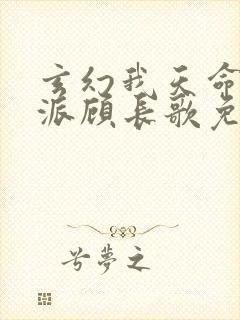 玄幻我天命
派顾长歌免
兮夢之